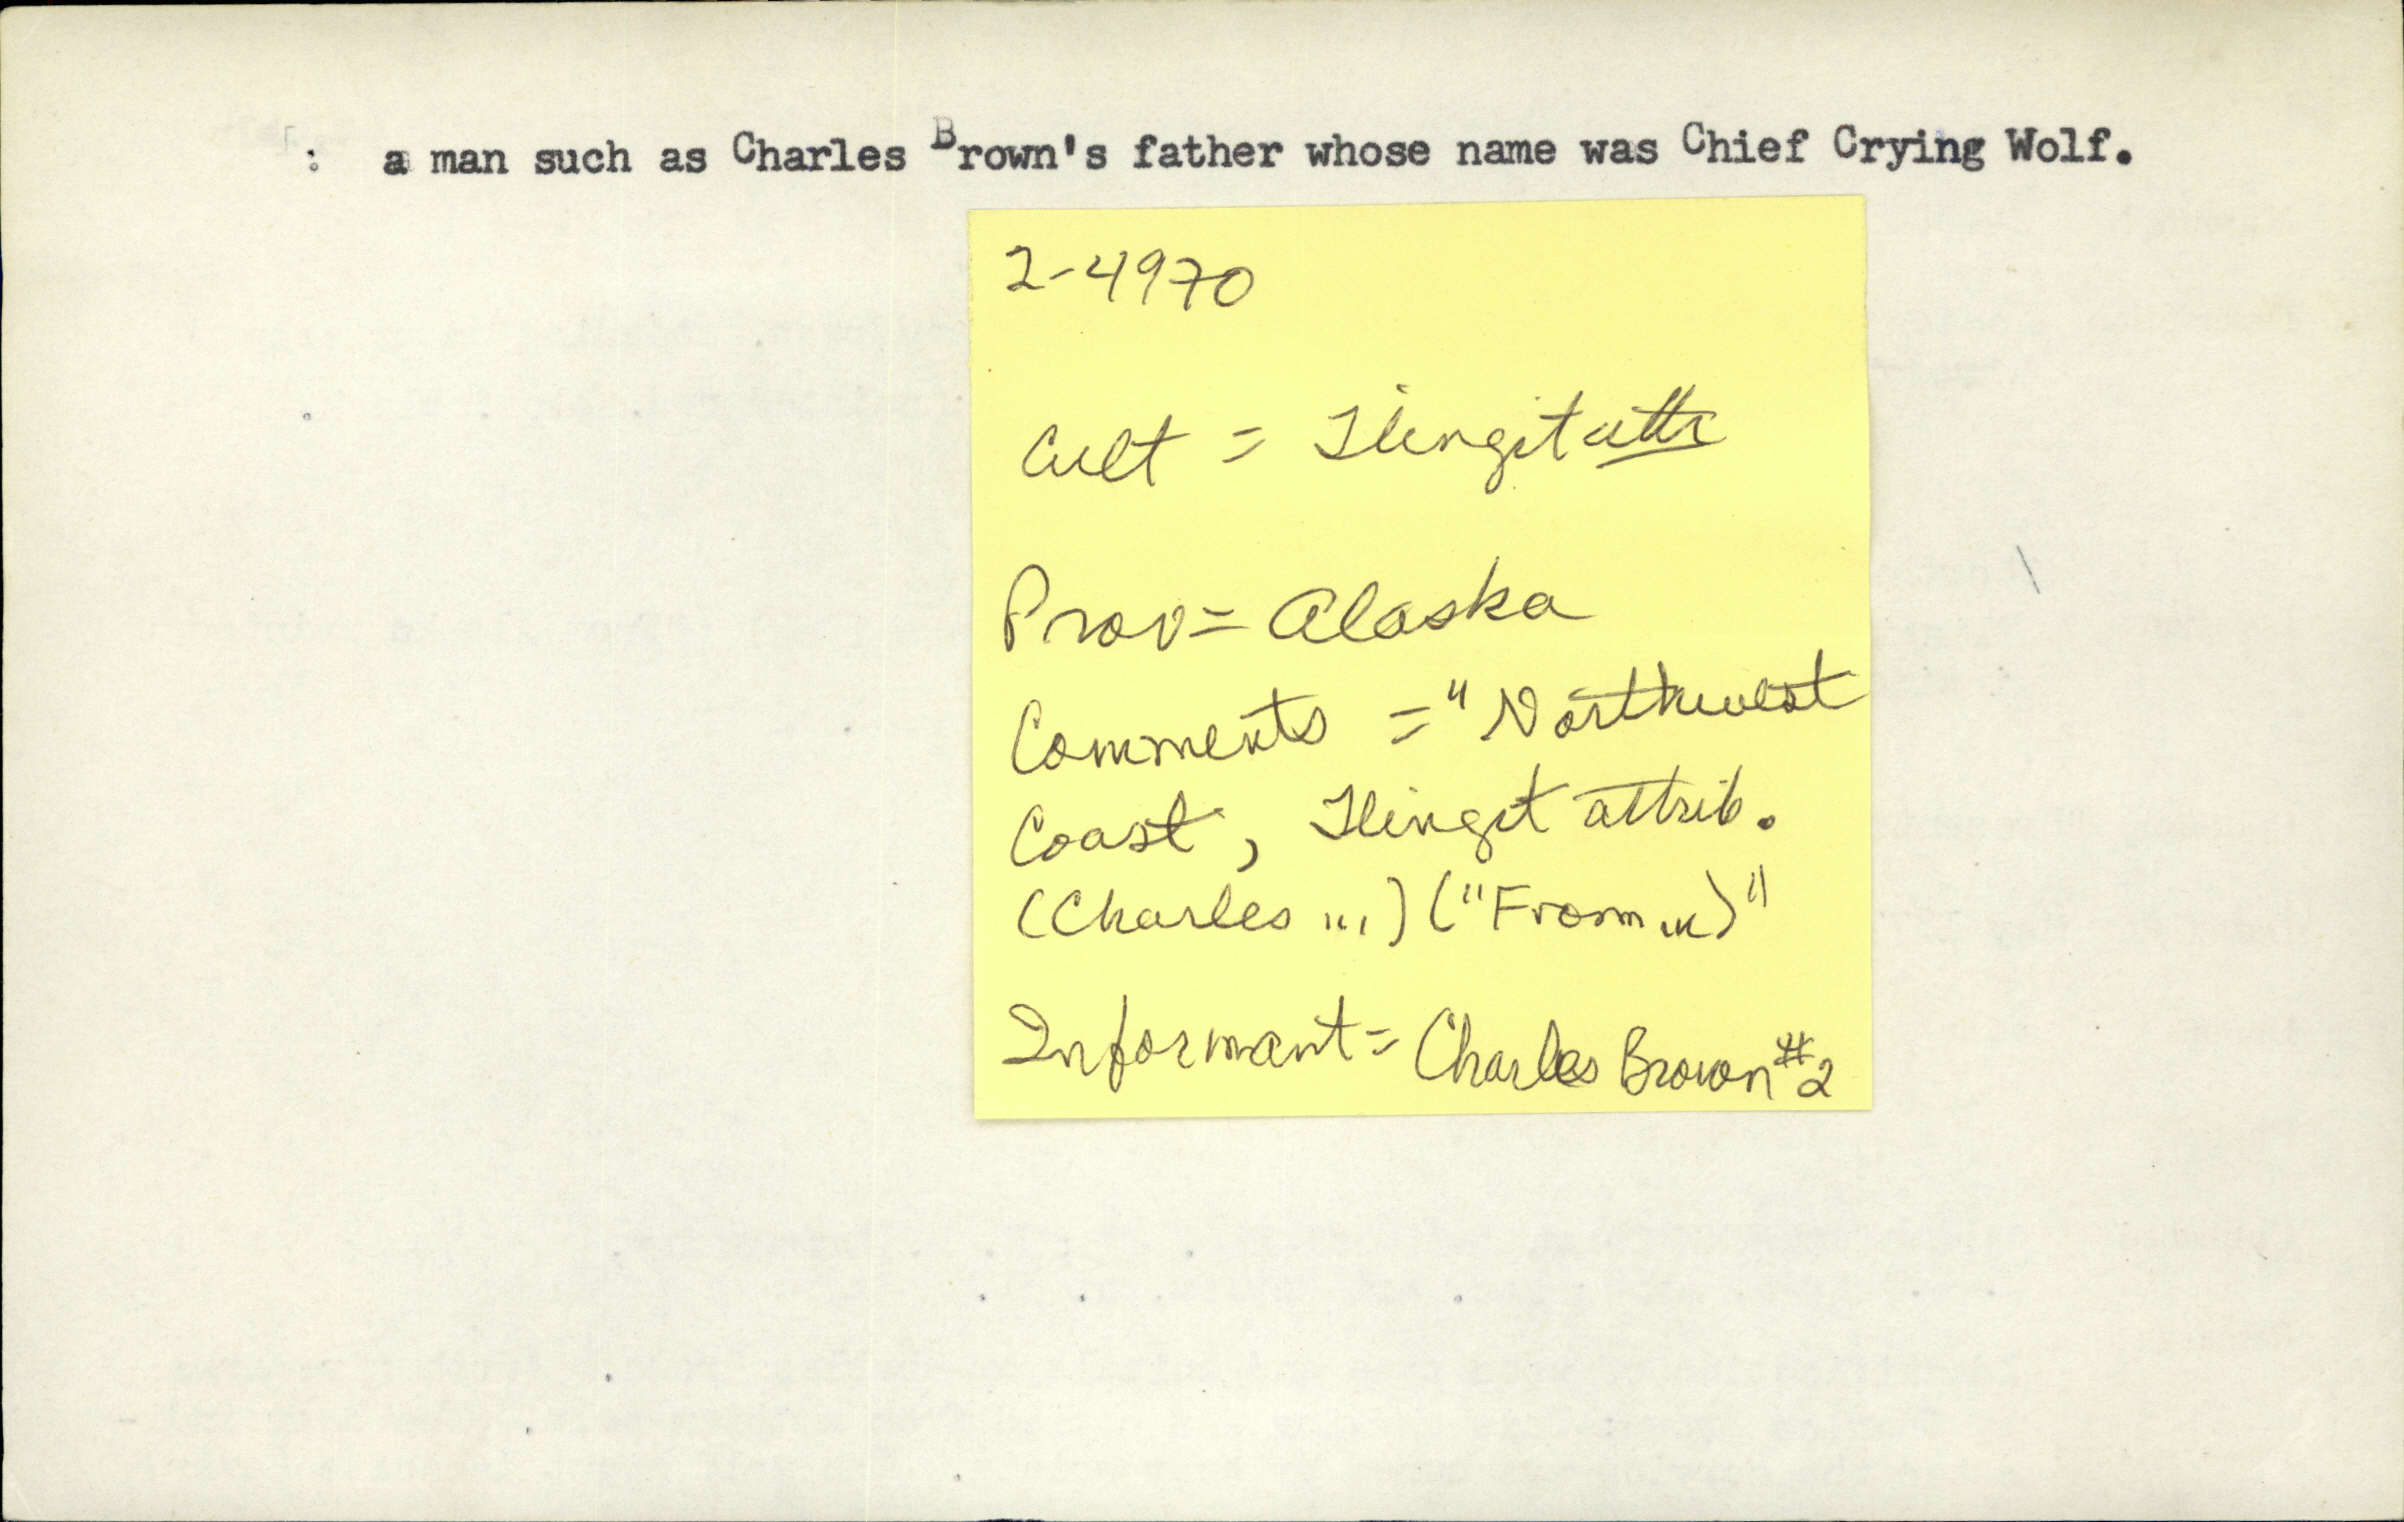 : a man such as Charles Brown's father whose name was Chief Crying Wolf.
2-4970
Cult = Tlingit attr
Prov = Alaska
Comments = "Northwest
Coast, Tlingit attrib.
(Charles ...) ("From ...)"
Informant = Charles Brown #2